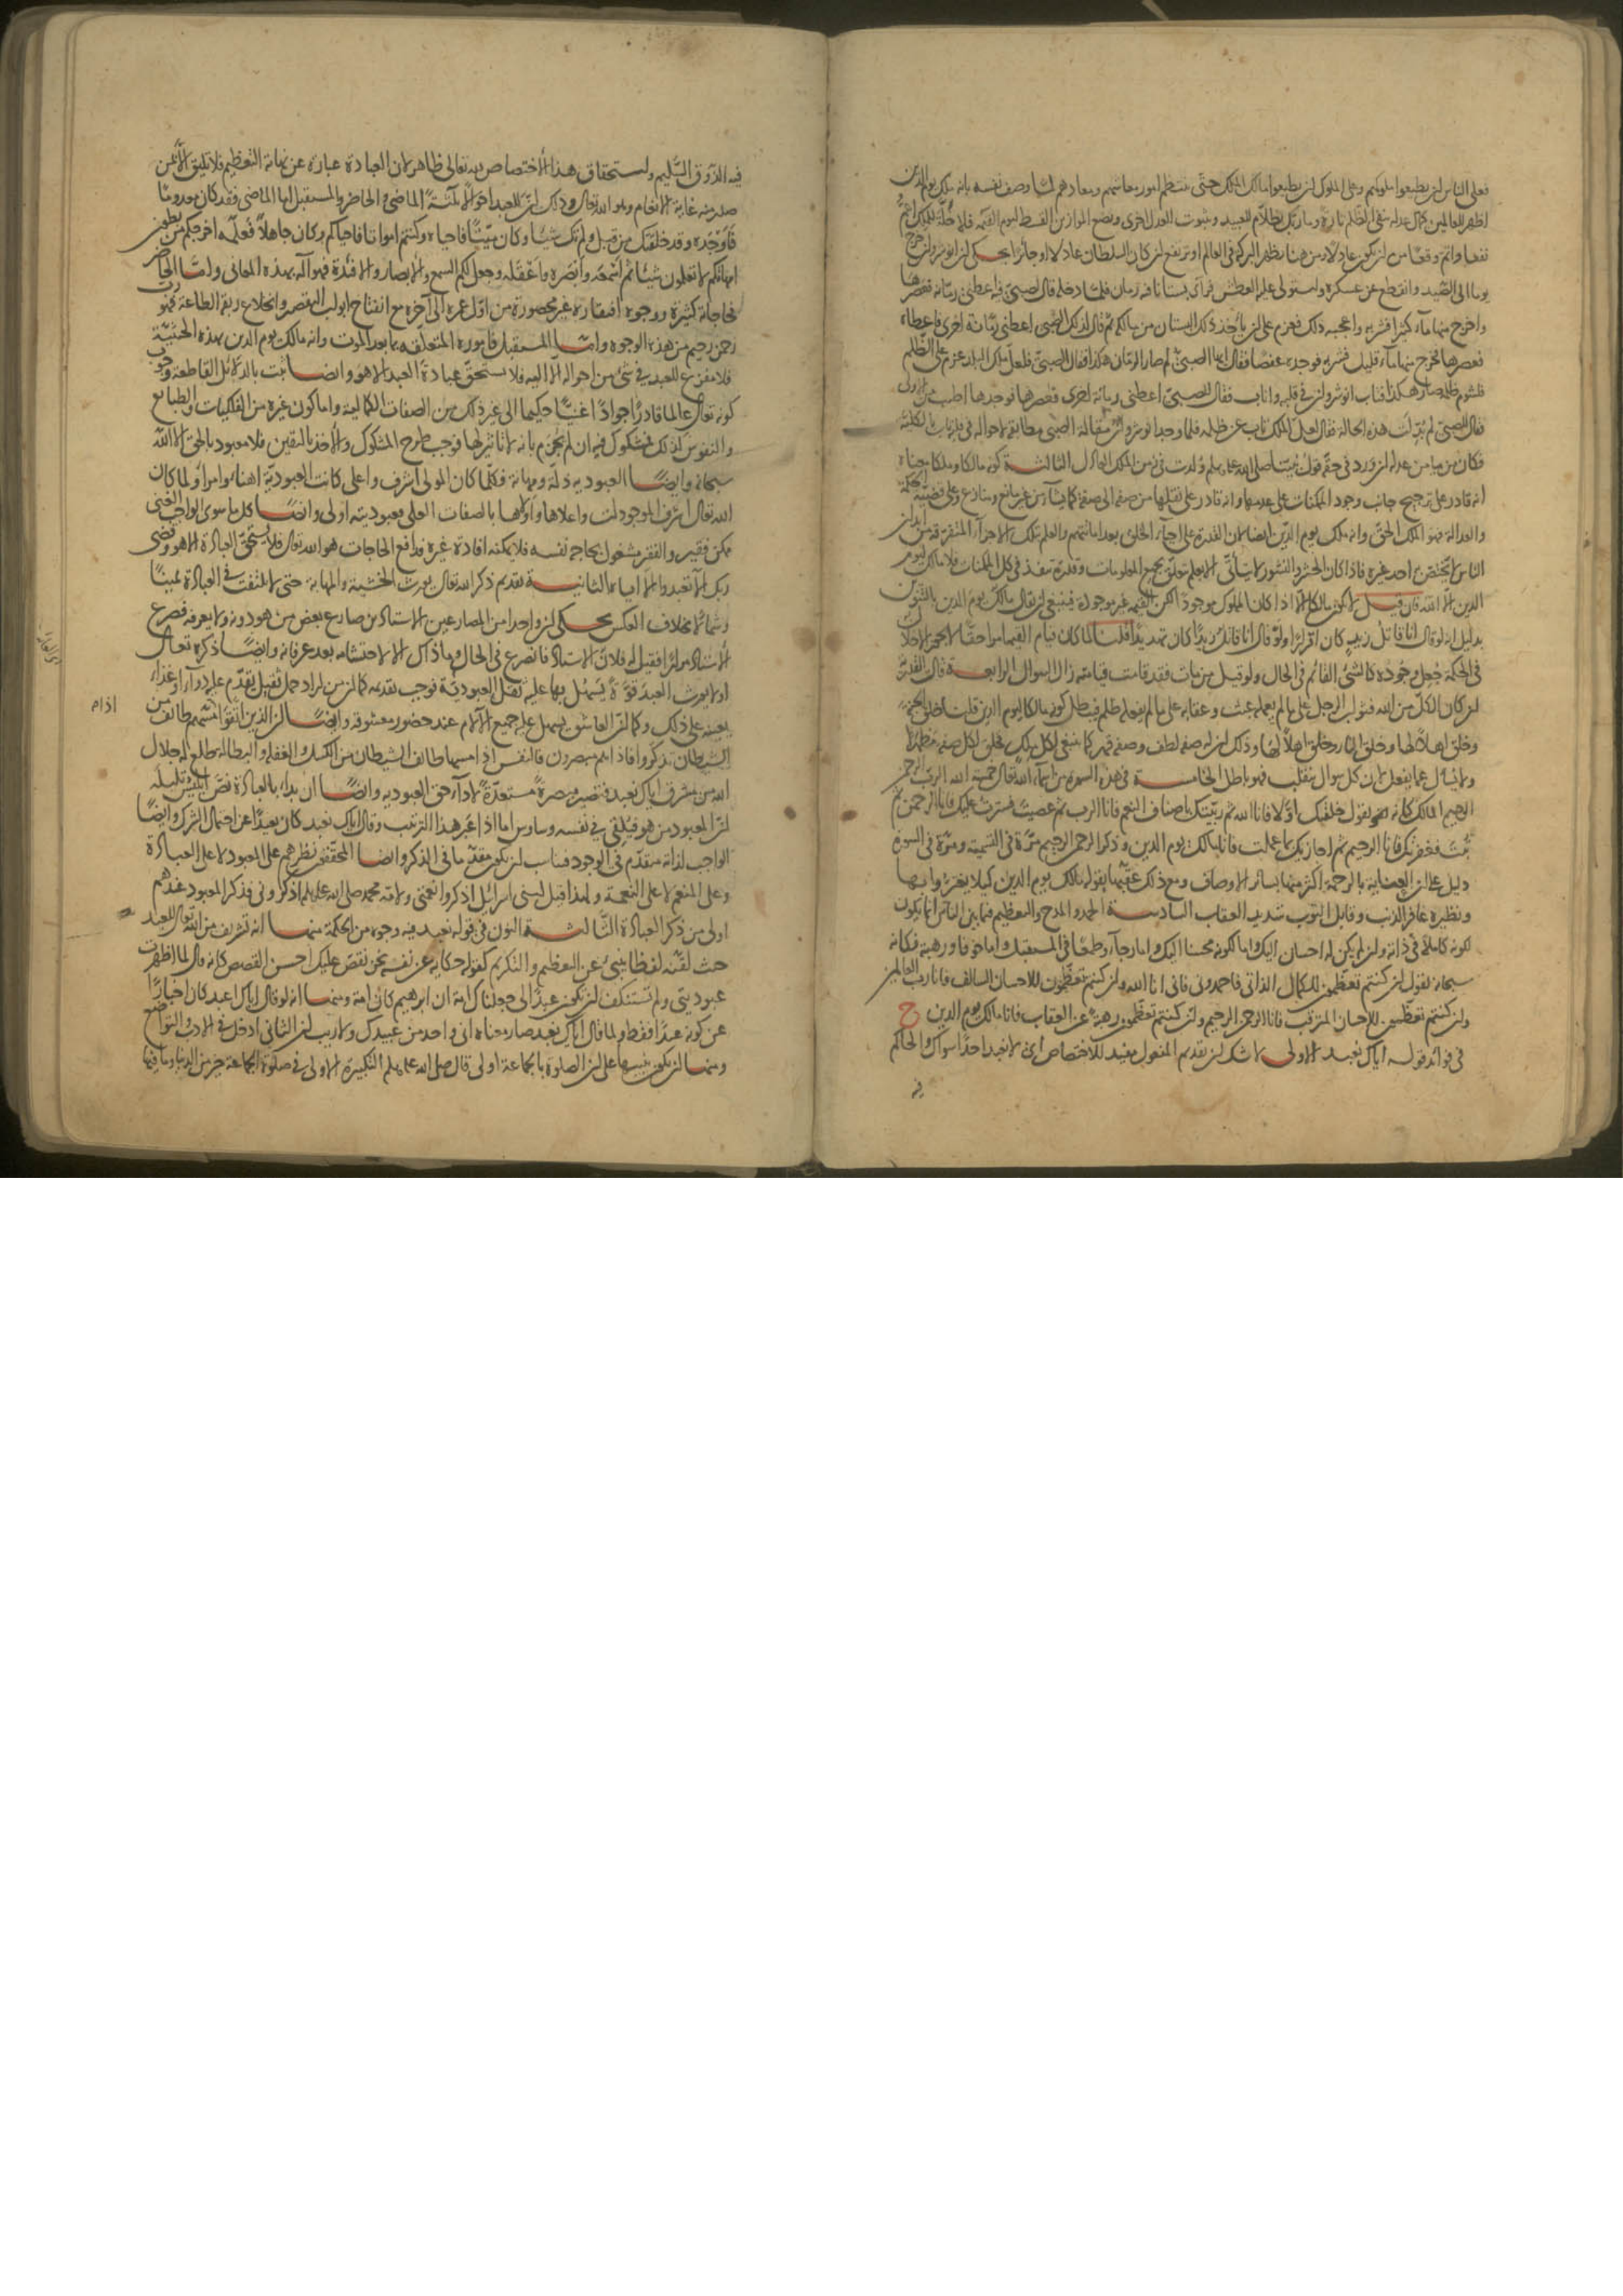 فعلى الناس ان يطيعوا ملوكهم وعلى الملوك ان يطيعوا مالك الملك حتى ينتظم امور معاشهم ومعادهم لما وصف نفسه بانه ملك يوم الدين
اظهر للعالمين كمال عدله بنفى الظلم تارة وما ربك بظلام للعبيد وبثبوت العدل اخرى ونضع الموازين القسط ليوم القيمة فلا خلة للملك اتم و
نفعا واتم وقعا من ان يكون عادلا ومن هنا يظهر البركة فى العالم او ترتفع ان كان السلطان عادلا او جائرا يحكى ان انوشروان خرج
يوما الى الصيد وانقطع عن عسكره واستولى عليه العطش فراى بستانا فيه رمان فلما دخله قال لصبى فيه اعطنى رمانة فعصرها
واخرج منها ماء كثيرا فشربه واعجبه ذلك فعزم على ان يأخذ ذلك البستان من مالكه ثم قال لذلك الصبى اعطنى رمانة اخرى فاعطاه
فعصرها فخرج منها ماء قليل فشربه فوجده عفصا فقال ايها الصبى لم صار الرمان هكذا فقال الصبى فلعل ملك البلد عزم على الظلم
فلشوم ظلمه صار هكذا فتاب انوشروان فى قلبه واناب فقال للصبى اعطنى رمانة اخرى فعصرها فوجدها اطيب من الاولى
فقال للصبى لم بدلت هذه الحالة فقال لعل الملك تاب عن ظلمه فلما وجد انوشروان مقالة الصبى مطابقة لاحواله فى قلبه تاب بالكلية
فكان من ميامن عدله ان ورد فى حقه قول نبينا صلى الله عليه وسلم ولدت فى زمن الملك العادل الثالثة كونه مالكا وملكا معناه
انه قادر على ترجيح جانب وجود الممكنات على عدمها وانه قادر على نقلها من صفة الى صفة كما يشاء من غير مانع ومنازع وعلى قضية الحكمة
والعدالة فهو الملك الحق وانه ملك يوم الدين ايضا لان القدرة على احياء الخلق بعد اماتتهم والعلم بتلك الاجزاء المتفرقة من ابدان
الناس لا يختص به احد غيره فاذا كان الحشر والنشور لا يتأتى الا بعلم متعلق بجميع المعلومات وقدرة تنفذ فى كل الممكنات فلا مالك ليوم
الدين الا الله فان قيل لا يكون مالكا الا اذا كان المملوك موجودا لكن القيمة غير موجودة فينبغى ان يقال مالك يوم الدين بالتنوين
بدليل انه لو قال انا قاتل زيد كان اقرارا ولو قال انا قاتل زيدا كان تهديدا قلنا لما كان قيام القيمة امرا حقا لا يجوز الاخلال
فى الحكمة جعل وجوده كالشىء القائم فى الحال ولو قيل من مات فقد قامت قيامته زال السوال الرابعة قالت القدرية
ان كان الكل من الله فثواب الرجل على ما لم يعمله عبث وعقابه على ما لم يفعله ظلم فيبطل كونه مالكا ليوم الدين قلنا خلق الجنة
وخلق اهلا لها وخلق النار وخلق اهلا لها وذلك ان له صفة لطف وصفة قهر كما ينبغى لكل ملك فخلق لكل صفة مظهرا
ولا يسأل عما يفعل لان كل سوال ينقلب فهو باطل الخامسة فى هذه السورة من اسماء الله تعالى خمسة الله الرب الرحمن
الرحيم المالك كانه يقول خلقتك اولا فانا الله ثم ربيتك باصناف النعم فانا الرب ثم عصيت فسترت عليك فانا الرحمن ثم
تبت فغفرت لك فانا الرحيم ثم اجازيك بما عملت فانا مالك يوم الدين وذكر الرحمن الرحيم مرة فى التسمية ومرة فى السورة
دليل على ان العناية بالرحمة اكثر منها بسائر الاوصاف ومع ذلك عقبهما بقوله مالك يوم الدين كيلا يغتروا بها
ونظيره غافر الذنب وقابل التوب شديد العقاب السادسة الحمد والمدح والتعظيم فيما بين الناس انما يكون
لكونه كاملا فى ذاته وان لم يكن له احسان اليك واما لكونه محسنا اليك واما رجاء وطمعا فى المستقبل واما خوفا ورهبة فكانه
سبحانه يقول ان كنتم تعظمون للكمال الذاتى فاحمدونى فانى انا الله وان كنتم تعظمون للاحسان السالف فانا رب العالمين
وان كنتم تعظمون للاحسان المترقب فانا الرحمن الرحيم وان كنتم تعظمون رهبة عن العقاب فانا مالك يوم الدين ح
فى فوائد قوله اياك نعبد الاولى لا شك ان تقديم المفعول مفيد للاختصاص اى لا نعبد احدا سواك والحاكم
فيه الذوق السليم واستحقاق هذا الاختصاص لله تعالى ظاهر لان العبادة عبارة عن نهاية التعظيم فلا تليق الا لمن
صدر منه غاية الانعام وهو الله تعالى وذلك ان للعبد احوالا ثلثة الماضى والحاضر والمستقبل اما الماضى فقد كان معدوما
فاوجده وقد خلقتك من قبل ولم تك شيئا وكان ميتا فاحياه وكنتم امواتا فاحياكم وكان جاهلا فعلمه اخرجكم من بطون
امهاتكم لا تعلمون شيئا ثم اسمعه وابصره واعقله وجعل لكم السمع والابصار والافئدة فهو آله بهذه المعانى واما الحاضر
فحاجاته كثيرة ووجوه افتقاره غير محصورة من اول عمره الى آخره مع انفتاح ابواب التقصير وانخلاع ربقة الطاعة فهو رب
رحمن رحيم من هذه الوجوه واما المستقبل فاموره المتعلقه بما بعد الموت وانه مالك يوم الدين بهذه الحيثية
فلا مفزع للعبد فى شىء من احواله الا اليه فلا يستحق عبادة العبد الا هو وايضا ثبت بالدلائل القاطعة وجوب
كونه تعالى عالما قادرا جوادا غنيا حكيما الى غير ذلك من الصفات الكمالية واما كون غيره من الفلكيات والطبائع
والنفوس كذلك فمشكوك فيه ان لم نجزم بانه لا تاثير لها فوجب طرح المشكوك والاخذ باليقين فلا معبود بالحق الا الله
سبحانه وايضا العبودية ذلة ومهانة وكلما كان المولى اشرف واعلى كانت العبودية اهنأ وامرأ ولما كان
الله تعالى اشرف الموجودات واعلاها واولاها بالصفات العلى فعبوديته اولى وايضا كل ما سوى الواجب الغنى
ممكن فقير والفقير مشغول بحاجة نفسه فلا يمكنه افادة غيره فدافع الحاجات هو الله تعالى فلا يستحق العبادة الا هو وقضى
ربك الا تعبدوا الا اياه الثانية تقديم ذكر الله تعالى يورث الخشية والمهابة حتى لا يلتفت فى العبادة يمينا
وشمالا بخلاف العكس يحكى ان واحدا من المصارعين الاستاذين صارع بعض من هو دونه ولا يعرفه فصرع
الاستاذ مرارا فقيل له فلان الاستاذ فانصرع فى الحال وما ذاك الا لاحتشامه بعد عرفانه وايضا ذكره تعالى
اولا يورث العبد قوة يسهل بها عليه ثقل العبودية فوجب تقديمه كما ان من اراد حمل ثقيل يقدم عليه دواء او غذاء
يعينه على ذلك وكما ان العاشق يسهل عليه جميع الآلام عند حضور معشوقه وايضا ان الذين اتقوا اذا مسهم طائف من
الشيطان تذكروا فاذا هم مبصرون فالنفس اذا مسها طائف الشيطان من الكسل والغفلة والبطالة تطلع له جلال
الله من مشرق اياك نعبد فتصير مبصرة مستعدة لاداء حق العبودية وايضا ان بدأ بالعبادة فتن ابليس قلبه
ان المعبود من هو فيلقى فى نفسه وساوس اما اذا غير هذا الترتيب وقال اياك نعبد كان بعيدا عن احتمال الشرك وايضا
الواجب لذاته متقدم فى الوجود فناسب ان يكون مقدما فى الذكر وايضا المحققون نظرهم على المعبود لا على العبادة
وعلى المنعم لا على النعمة ولهذا قيل لبنى اسرائيل اذكروا نعمتى ولامة محمد صلى الله عليه وسلم اذكرونى فذكر المعبود عندهم
اولى من ذكر العبادة الثالثة النون فى قوله نعبد فيه وجوه من الحكمة منها انه تشريف من الله تعالى للعبد
حيث لقنه لفظا ينبئ عن التعظيم والتكريم كقوله حكاية عن نفسه نحن نقص عليك احسن القصص كانه قال لما اظهرت
عبوديتى ولم تستنكف ان تكون عبدا لى جعلناك امة ان ابرهيم كان امة ومنها انه لو قال اياك اعبد كان اخبارا
عن كونه عبدا فقط ولما قال اياك نعبد صار معناه انى واحد من عبيدك ولا ريب ان الثانى ادخل فى الادب والتواضع
ومنها ان يكون تنبيها على ان الصلوة بالجماعة اولى قال صلى الله عليه وسلم التكبيرة الاولى فى صلوة الجماعة خير من الدنيا وما فيها